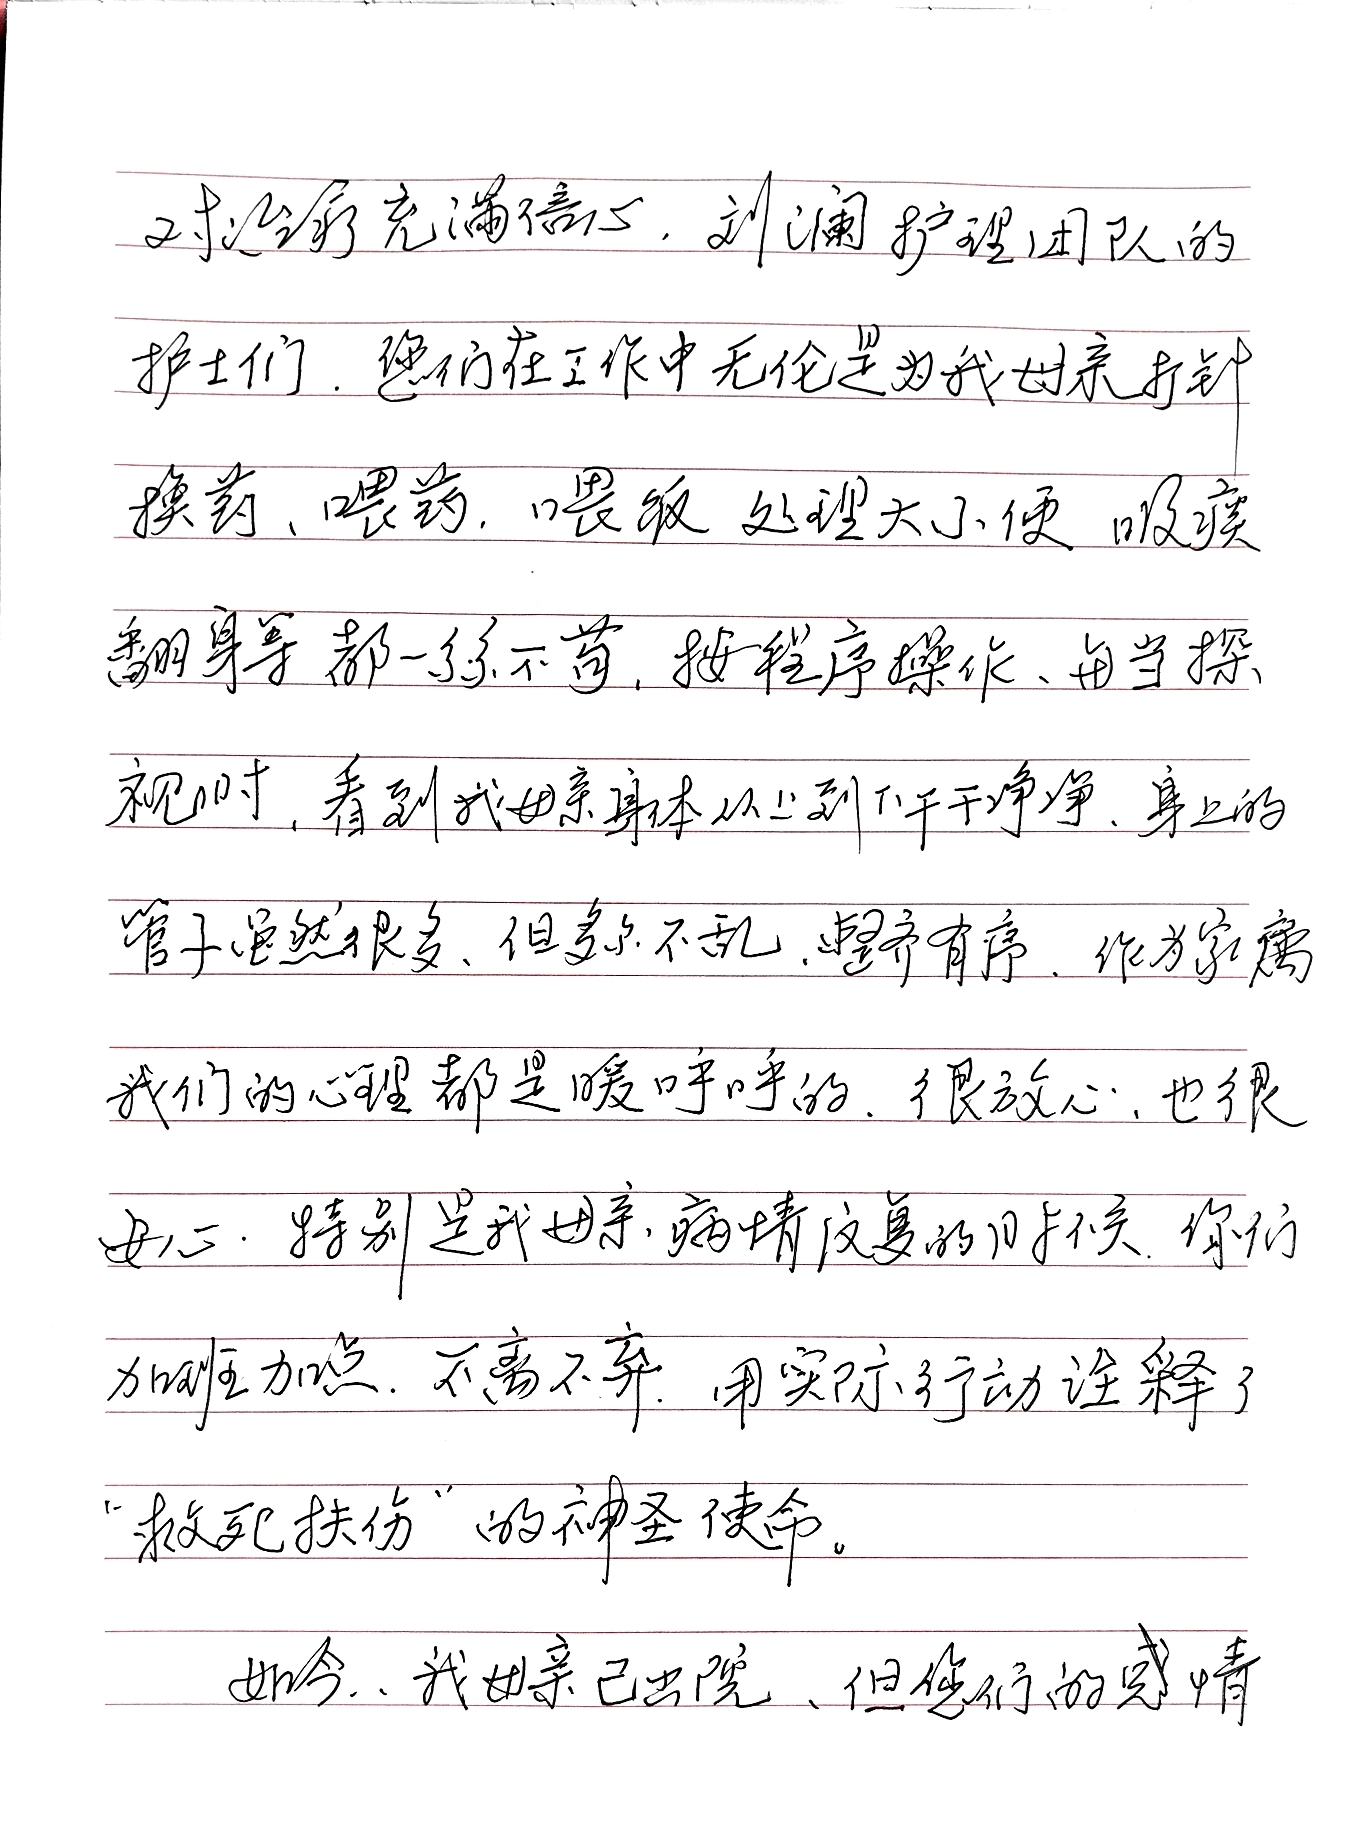 对治疗充满信心，刘澜护理团队的
护士们．您们在工作中无伦是为我母亲打针
换药、喂药．喂饭 处理大小便 吸痰
翻身等都一丝不苟，按程序操作、每当探
视时，看到我母亲身体从上到下干干净净、身上的
管子虽然很多、但多尔不乱，整齐有序．作为家属
我们的心理都是暖呼呼的．很放心，也很
安心．特别是我母亲，病情反复的时候．你们
加班加点．不离不弃．用实际行动诠释了
“救死扶伤”的神圣使命。
如今．、我母亲已出院、但您们的感情